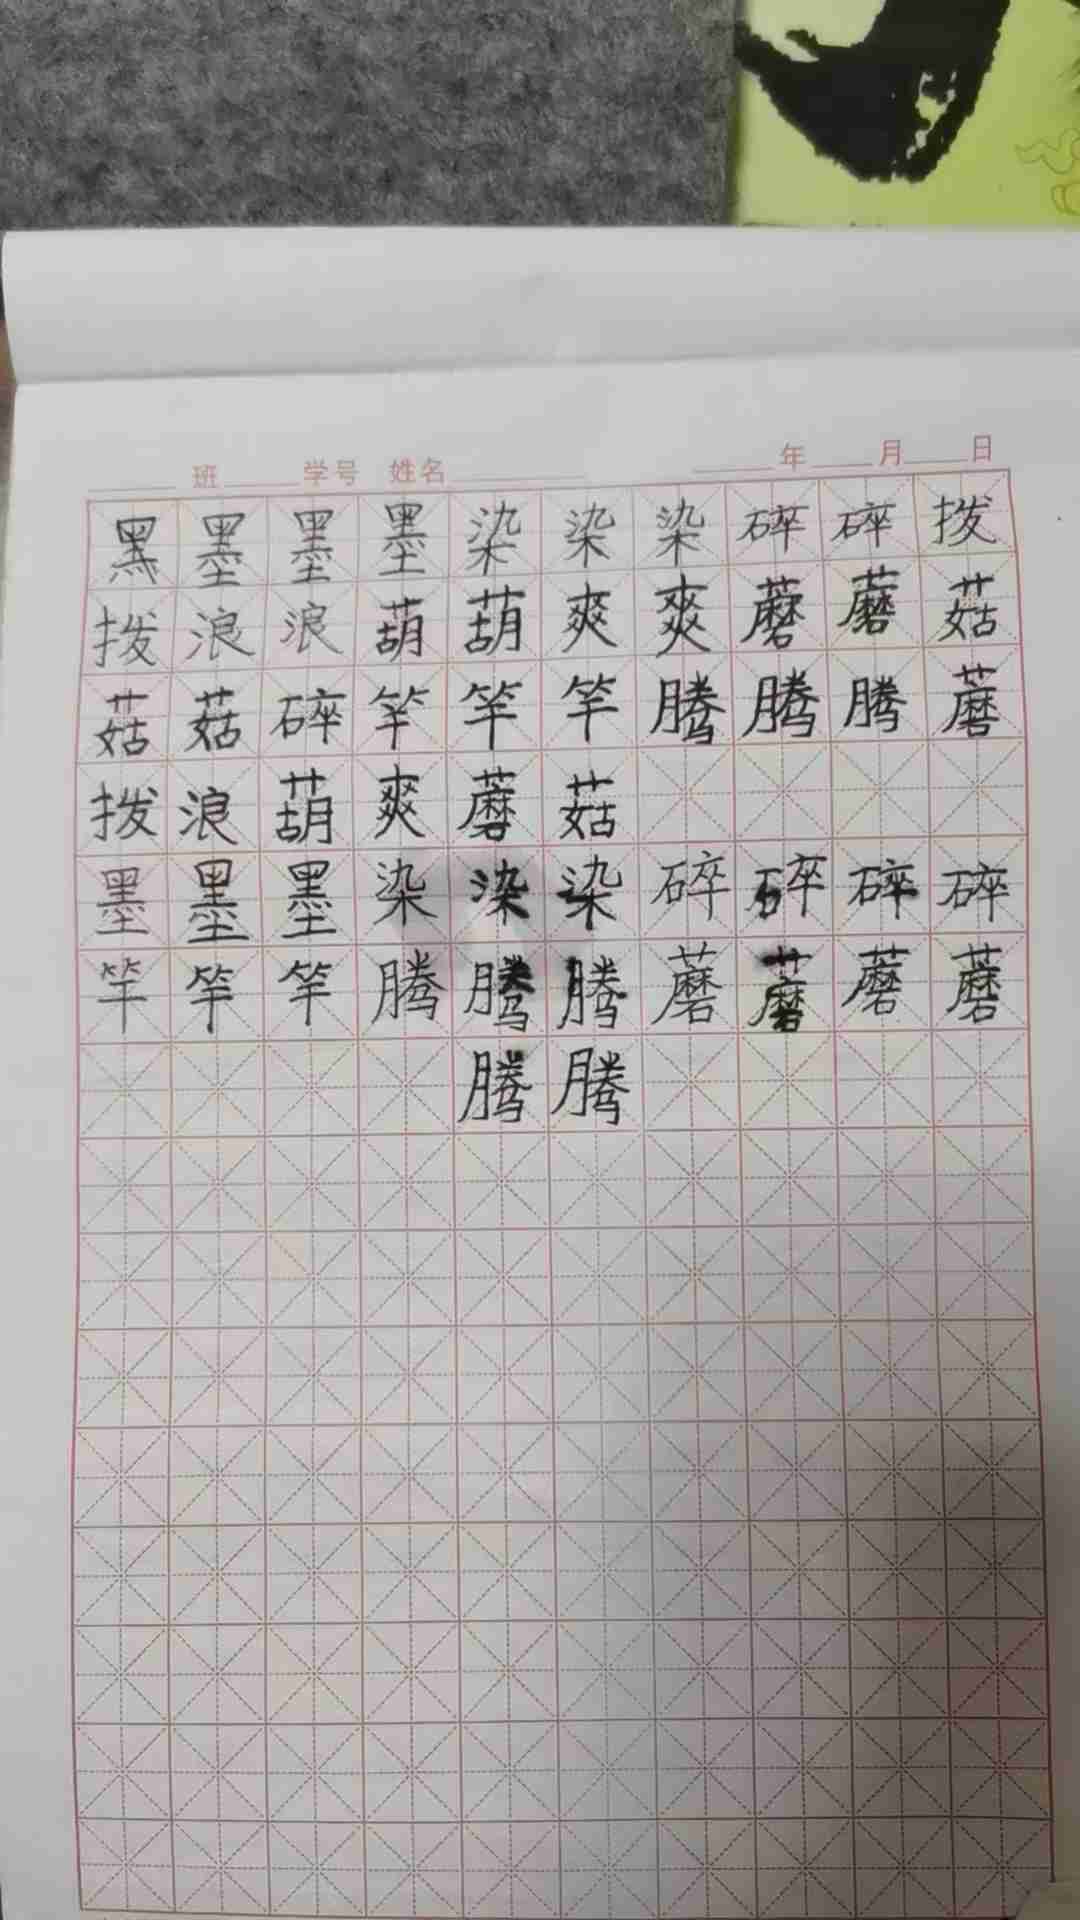 班 学号 姓名 年 月 日
黑墨墨墨染染染碎碎拨
拨浪浪葫葫爽爽蘑蘑菇
菇菇碎竿竿竿腾腾腾蘑
拨浪葫爽蘑菇
墨墨墨染染染碎碎碎碎
竿竿竿腾腾腾蘑蘑蘑蘑
腾腾